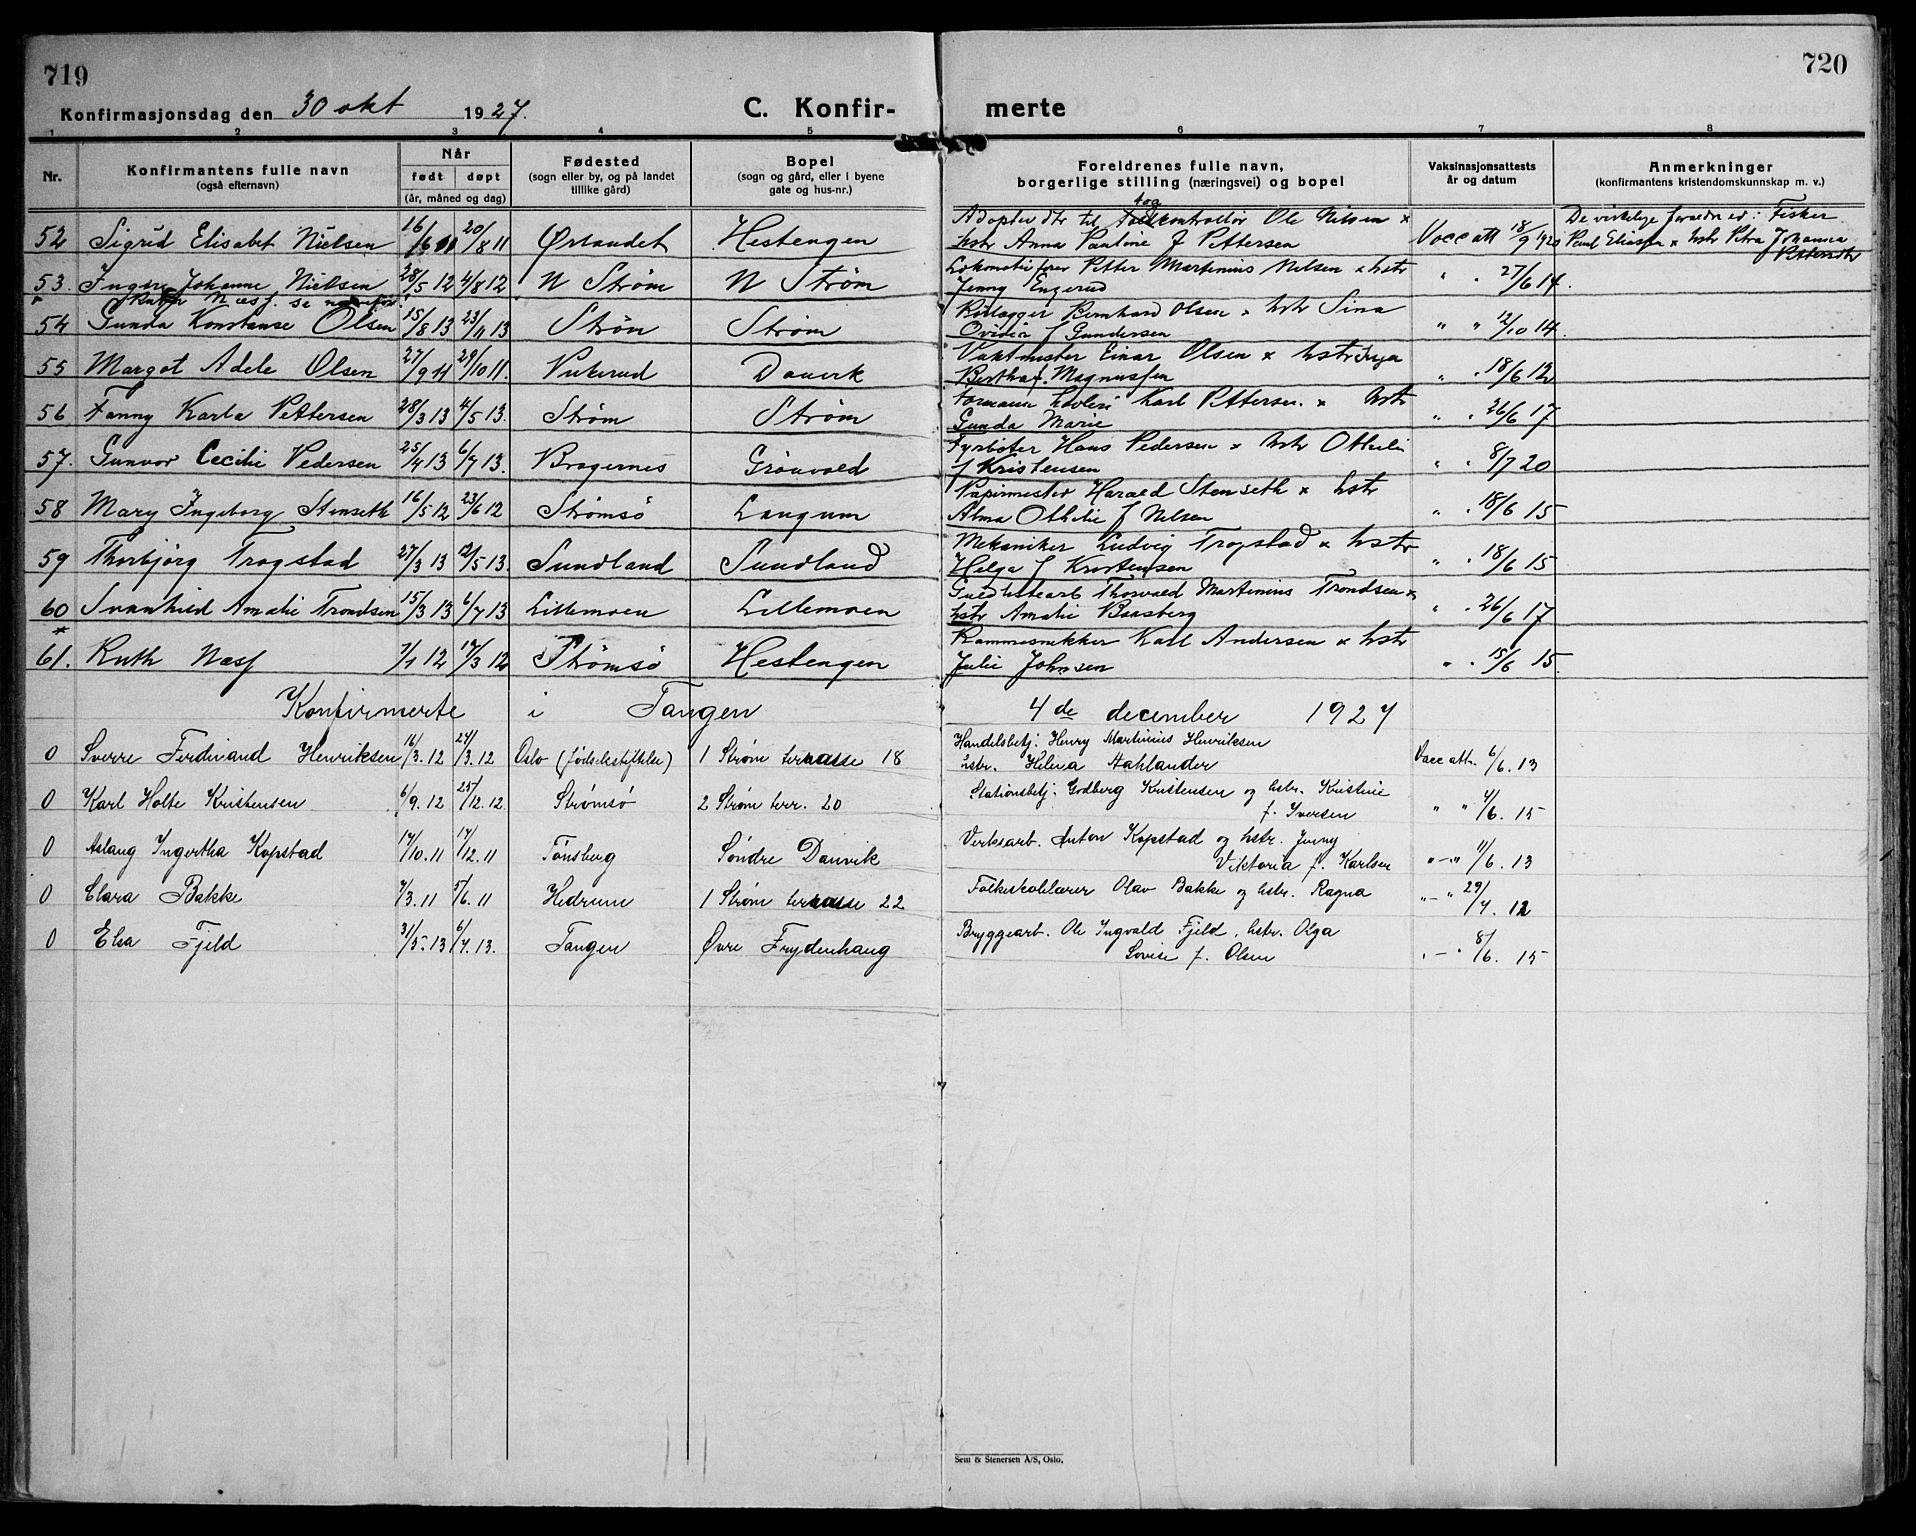 719
720
Konfirmasjonsdag den 30 okt 1927.
C. Konfir-
merte
1 2 3 4 5 6 7 8
Nr.
Konfirmantens fulle navn
(også efternavn)
Når
født døpt
(år, måned og dag)
Fødested
(sogn eller by, og på landet
tillike gård)
Bopel
(sogn og gård, eller i byene
gate og hus-nr.)
Foreldrenes fulle navn,
borgerlige stilling (næringsvei) og bopel
Vaksinasjonsattests
år og datum
Anmerkninger
(konfirmantens kristendomskunnskap m. v.)
52 Sigrid Elisabet Nielsen 16/6 20/8 11 Ørlandet Hestengen Adopter dtr til kontrollör Ole Nilsen x
hstr Anna Pauline f Pettersen Vacc att 18/9 1920 De virkelige foreldre er: Fisker
Paul Eliassen x hstr Petra Johanna
53. Johanne Nielsen 28/5 12 4/8 12 N Strøm N Strøm Petter Martinius Nelsen x hstr
Jenny Engerud " " 27/6 14.
Ruth Næss. se
54 Gunda Konstanse Olsen 15/8 13 23/11 13 Strøm Strøm Rörlegger Bernhard Olsen x hstr Sina
Ovidia f Gundersen " " 12/10 14.
55 Margot Adele Olsen 27/9 11 29/10 11. Danvik Vaktmester Einar Olsen x hstr Inga
Bertha f. Magnussen " " 18/6 12
56 Fanny Karla Pettersen 28/3 13 4/5 13 Strøm Strøm Karl Pettersen. x hstr
Gunda Marie " " 26/6 17
57. Gunvor Cecilie Pedersen 25/4 13 6/7 13. Bragernes Grönvold Fyrböter Hans Pedersen x hstr Othilie
f Kristensen " " 8/7 20
58 Mary Ingeborg Stenseth 16/5 12 23/6 12 Strømsö Langum Papirmester Harald Stenseth x hstr
Alma Othilie f Nelsen " " 18/6 15
59 Thorbjörg Trogstad 27/3 13 12/5 13. Sundland Sundland Mekaniker Ludvig Trogstad x hstr
Helga f Kristensen " " 18/6 15
60 Svanhild Amalie Trondsen 15/3 13 6/7 13 Lillemoen Lillemoen Thorvald Martinius Trondsen x
hstr Amalie Baasberg " " 26/6 17
61. Ruth Næss 7/1 12 17/3 12 Strømsö Hestengen Rammesnekker Karl Andersen x hstr
Julie Johnsen " " 15/6 15.
Konfirmerte i Tangen 4de december 1927
0 Sverre Ferdinand Henriksen 16/3. 12 24/3. 12 Oslo (fødselsstiftelse) 1 Strøm terrasse 18 Handelsbetj. Henry Martinius Henriksen
hstr. Helena Aahlander Vacc attr. 6/6. 13
0 Karl Holte Kristensen 6/9. 12 25/12. 12. Strømsö 2 Strøm terr. 20 Stationsbetj. Godberg Kristensen og hstr. Kristine
f. Iversen " " 4/6. 15
0 Aslaug Ingertha Kopstad 17/10. 11 17/12. 11 Tönsberg Söndre Danvik Verksarb. Anton Kopstad og hstr. Jenny
Viktoria f. Karlsen " - " 11/6. 13
0 Clara Bakke 7/3. 11 5/6. 11 Hedrum 1 Strøm terrasse 22 Folkeskolelærer Olav Bakke og hstr. Ragna " - " 29/7. 12
0 Elsa Fjeld 31/5. 13 6/7. 13. Tangen Øvre Frydenhaug Bryggearb. Ole Ingvald Fjeld, hstr. Olga
Lovise f. Olsen " - " 8/6. 15
Sem & Stenersen A/S, Oslo.